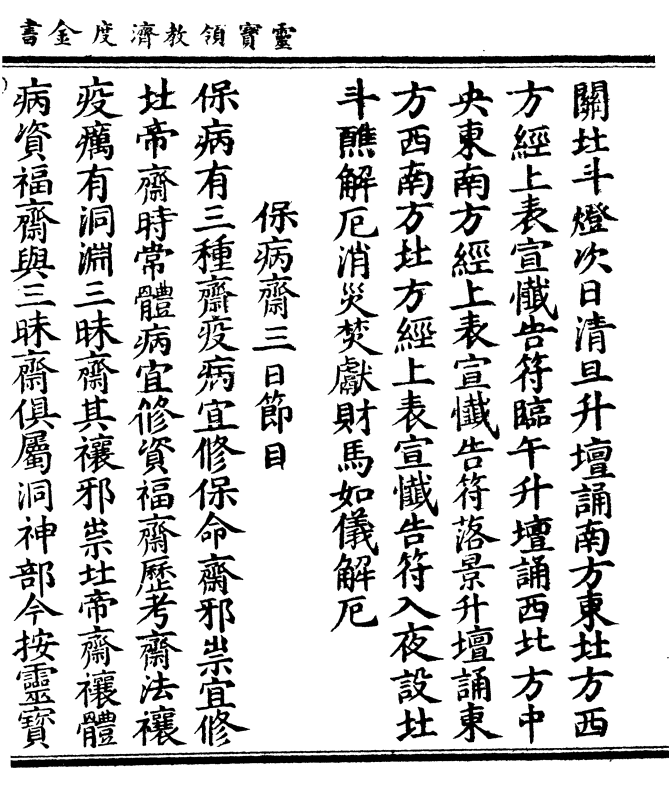 靈寶領教濟度金書
關北斗燈次日清旦升壇誦南方東北方西
方經上表宣懺告符臨午升壇誦西北方中
央東南方經上表宣懺告符落景升壇誦東
方西南方北方經上表宣懺告符入夜設北
斗醮解厄消災焚獻財馬如儀解厄
保病齋三日節目
保病有三種齋疫病宜修保命齋邪祟宜修
北帝齋時常體病宜修資福齋歷考齋法禳
疫癘有洞淵三昧齋其禳邪祟北帝齋禳體
病資福齋與三昧齋俱屬洞神部今按靈寶